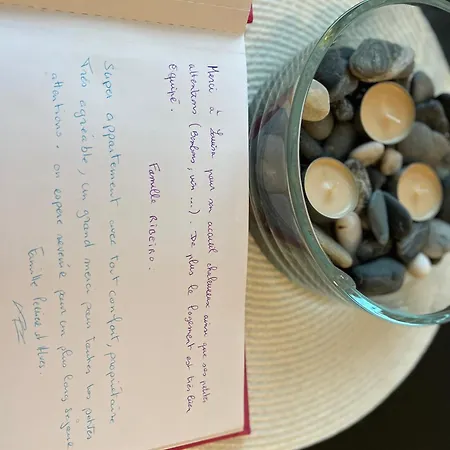 Merci à Louisa pour son accueil chaleureux ainsi que ses petites
attentions (Bonbons, vin ...). De plus le logement est très bien
équipé.
Famille RIBEIRO.
Super appartement avec tout confort, propriétaire
Très agréable, un grand merci pour toutes les petites
attentions. on espère revenir pour un plus long séjour
Famille d'Alves.